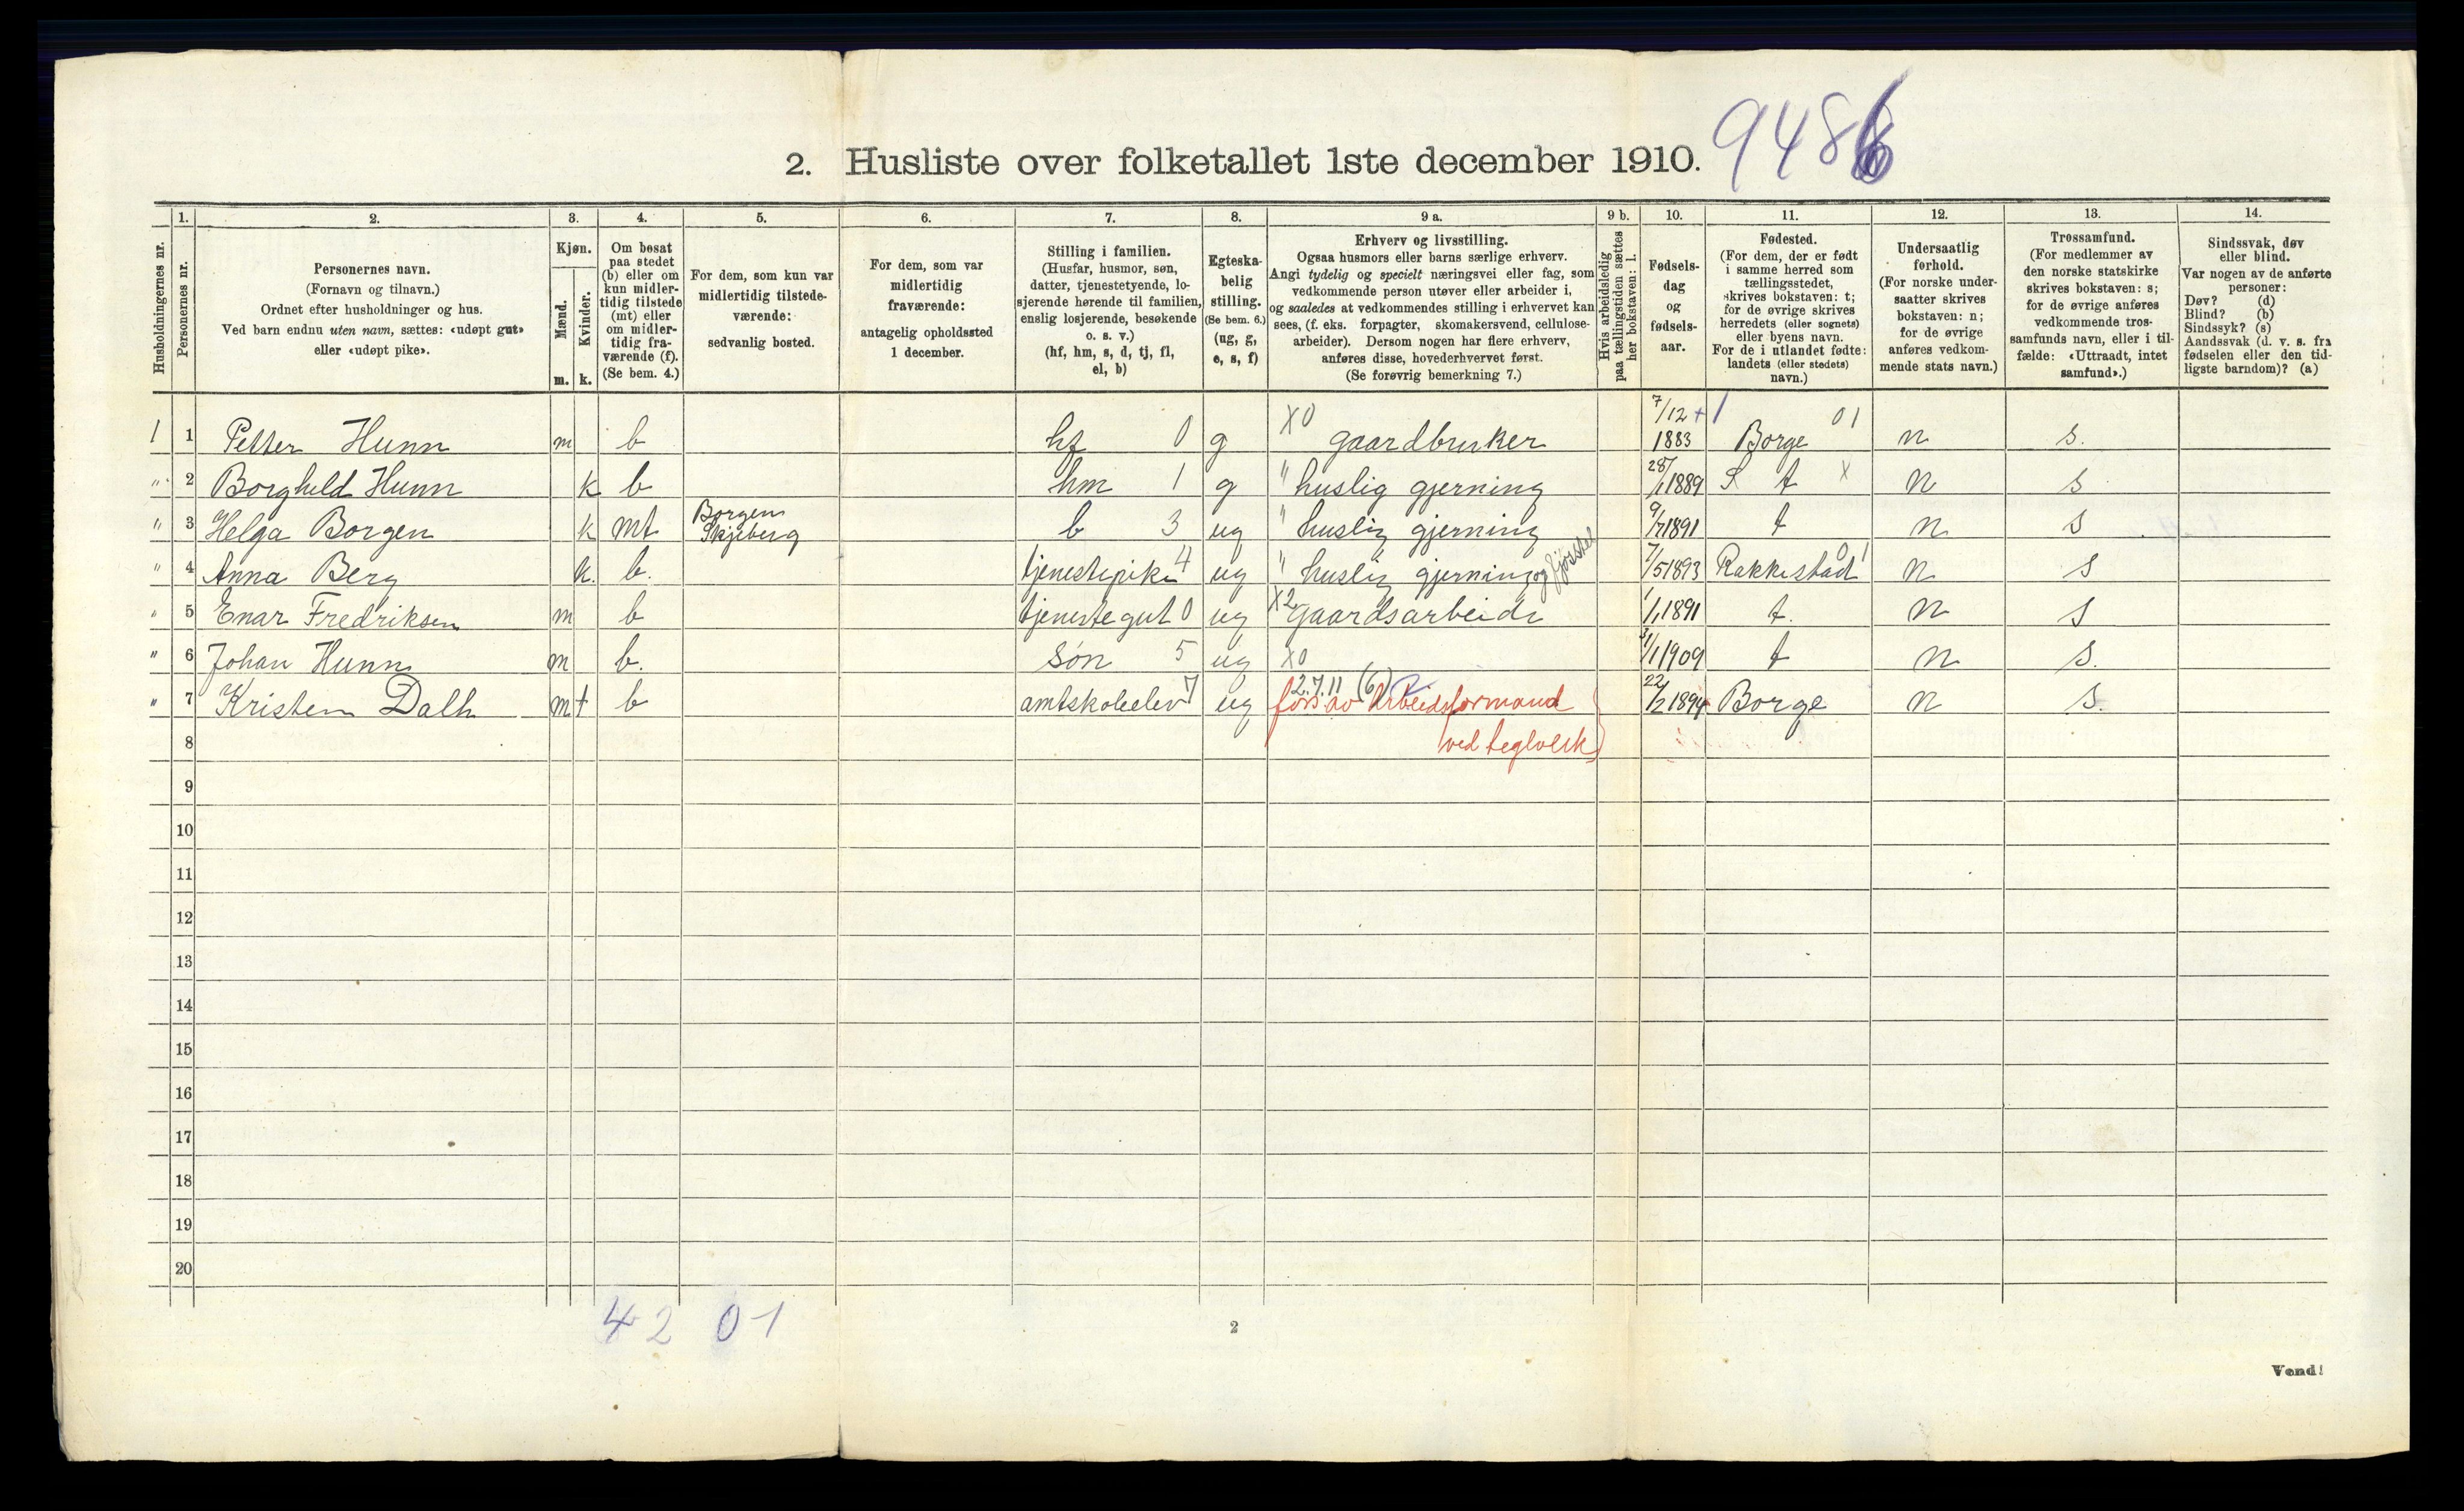 2. Husliste over folketallet 1ste december 1910. 9486
Husholdningernes nr.
1.
Personernes nr.
2.
Personernes navn.
(Fornavn og tilnavn.)
Ordnet efter husholdninger og hus.
Ved barn endnu uten navn, sættes: «udøpt gut»
eller «udøpt pike».
3.
Kjøn.
Mænd.
Kvinder.
m. k.
4.
Om bosat
paa stedet
(b) eller om
kun midler-
tidig tilstede
(mt) eller
om midler-
tidig fra-
værende (f).
(Se bem. 4.)
5.
For dem, som kun var
midlertidig tilstede-
værende:
sedvanlig bosted.
6.
For dem, som var
midlertidig
fraværende:
antagelig opholdssted
1 december.
7.
Stilling i familien.
(Husfar, husmor, søn,
datter, tjenestetyende, lo-
sjerende hørende til familien,
enslig losjerende, besøkende
o. s. v.)
(hf, hm, s, d, tj, fl,
el, b)
8.
Egteska-
belig
stilling.
(Se bem. 6.)
(ug, g,
e, s, f)
9 a.
Erhverv og livsstilling.
Ogsaa husmors eller barns særlige erhverv.
Angi tydelig og specielt næringsvei eller fag, som
vedkommende person utøver eller arbeider i,
og saaledes at vedkommendes stilling i erhvervet kan
sees, (f. eks. forpagter, skomakersvend, cellulose-
arbeider). Dersom nogen har flere erhverv,
anføres disse, hovederhvervet først.
(Se forøvrig bemerkning 7.)
9 b.
Hvis arbeidsledig
paa tællingstiden sættes
her bokstaven: l.
10.
Fødsels-
dag
og
fødsels-
aar.
11.
Fødested.
(For dem, der er født
i samme herred som
tællingsstedet,
skrives bokstaven: t;
for de øvrige skrives
herredets (eller sognets)
eller byens navn.
For de i utlandet fødte:
landets (eller stedets)
navn.)
12.
Undersaatlig
forhold.
(For norske under-
saatter skrives
bokstaven: n;
for de øvrige
anføres vedkom-
mende stats navn.)
13.
Trossamfund.
(For medlemmer av
den norske statskirke
skrives bokstaven: s;
for de øvrige anføres
vedkommende tros-
samfunds navn, eller i til-
fælde: «Uttraadt, intet
samfund».)
14.
Sindssvak, døv
eller blind.
Var nogen av de anførte
personer:
Døv? (d)
Blind? (b)
Sindssyk? (s)
Aandssvak (d. v. s. fra
fødselen eller den tid-
ligste barndom)? (a)
1 1 Petter Hunn m b hf 0 g X0 gaardbruker 7/12 1883 Borge 01 n s.
" 2 Borghild Hunn k b hm 1 g " huslig gjerning 28/1 1889 t x n s
" 3 Helga Borgen k mt Borgen Skjeberg b 3 ug " huslig gjerning 9/7 1891 t n s
" 4 Anna Berg k. b. tjenestepike 4 ug " huslig gjerning og fjøsstel 7/5 1893 Rakkestad 01 n s
" 5 Enar Fredriksen m b tjenestegut 0 ug X2 gaardsarbeide 1/1 1891 t. n s
" 6 Johan Hunn m b. søn 5 ug X0 31/1 1909 t n s.
" 7 Kristen Dalh mt b amtskoleelev 7 ug 2.7.11 (6) fors. av Arbeidsformand 22/2 1894 Borge n s.
8 ved teglverk
9
10
11
12
13
14
15
16
17
18
19
20
42 01
2
Vend!